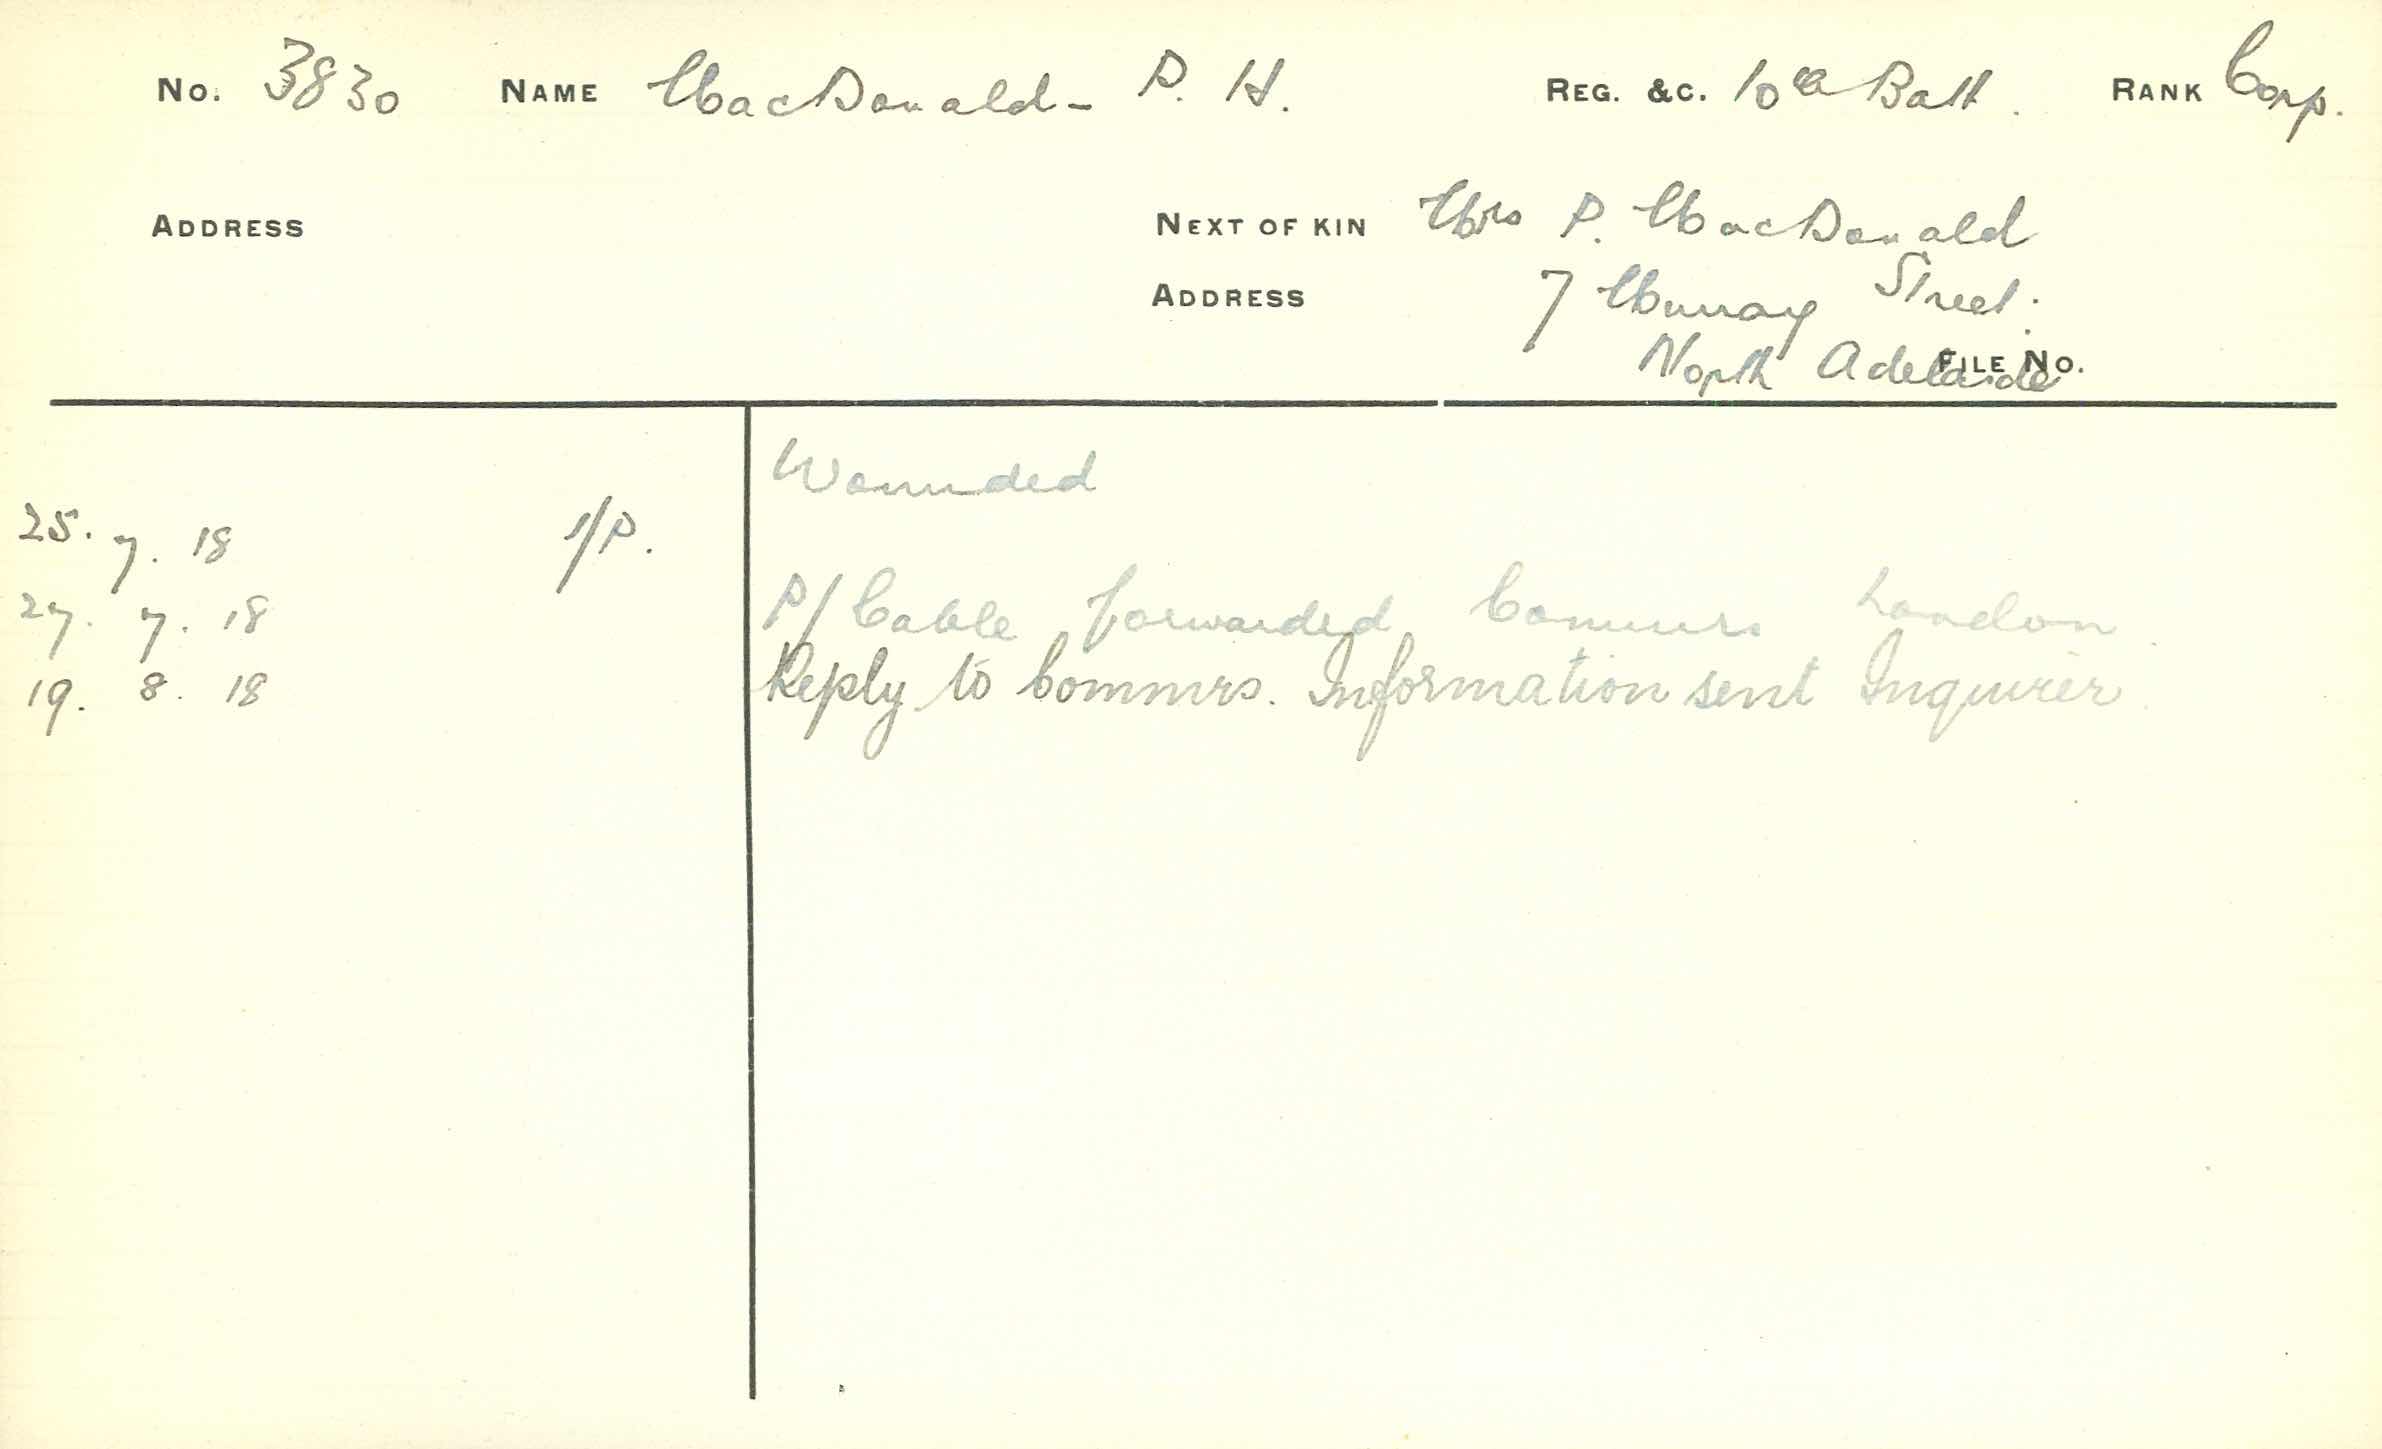 No. 3830 NAME MacDonald - P. H. REG. &C. 10th Batt. RANK Corp.
ADDRESS NEXT OF KIN Mrs P. MacDonald
ADDRESS 7 Murray Street.
North Adelaide FILE NO.
Wounded
25. 7. 18 1/P.
27. 7. 18 P/ Cable forwarded Commrs London
19. 8. 18 Reply to Commrs. Information sent Inquirer